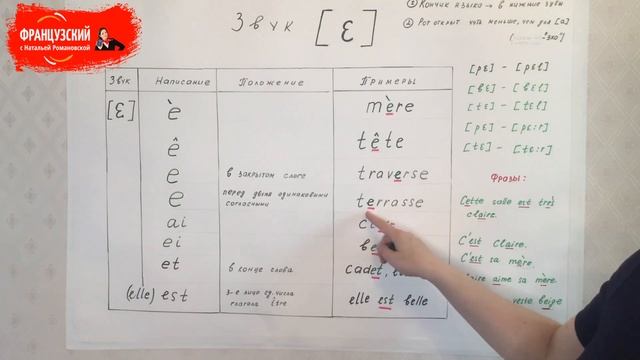 ФРАНЦУЗСКИЙ
с Натальей Романовской
Звук [ε]
① Кончик языка → в нижние зубы
② Рот открыт чуть меньше, чем для [a]
Звук Написание Положение Примеры
[ε] è mère
ê tête
e в закрытом слоге traverse
e перед двумя одинаковыми согласными terrasse
ai
ei
et в конце слова cadet,
(elle) est 3-е лицо ед. числа глагола être elle est belle
[pε] - [pεl]
[bε] - [bεl]
[tε] - [tεl]
[pε] - [pε:r]
[tε] - [tε:r]
Фразы:
Cette salle est très
claire.
C'est Claire.
C'est sa mère.
aime sa mère.
veste beige